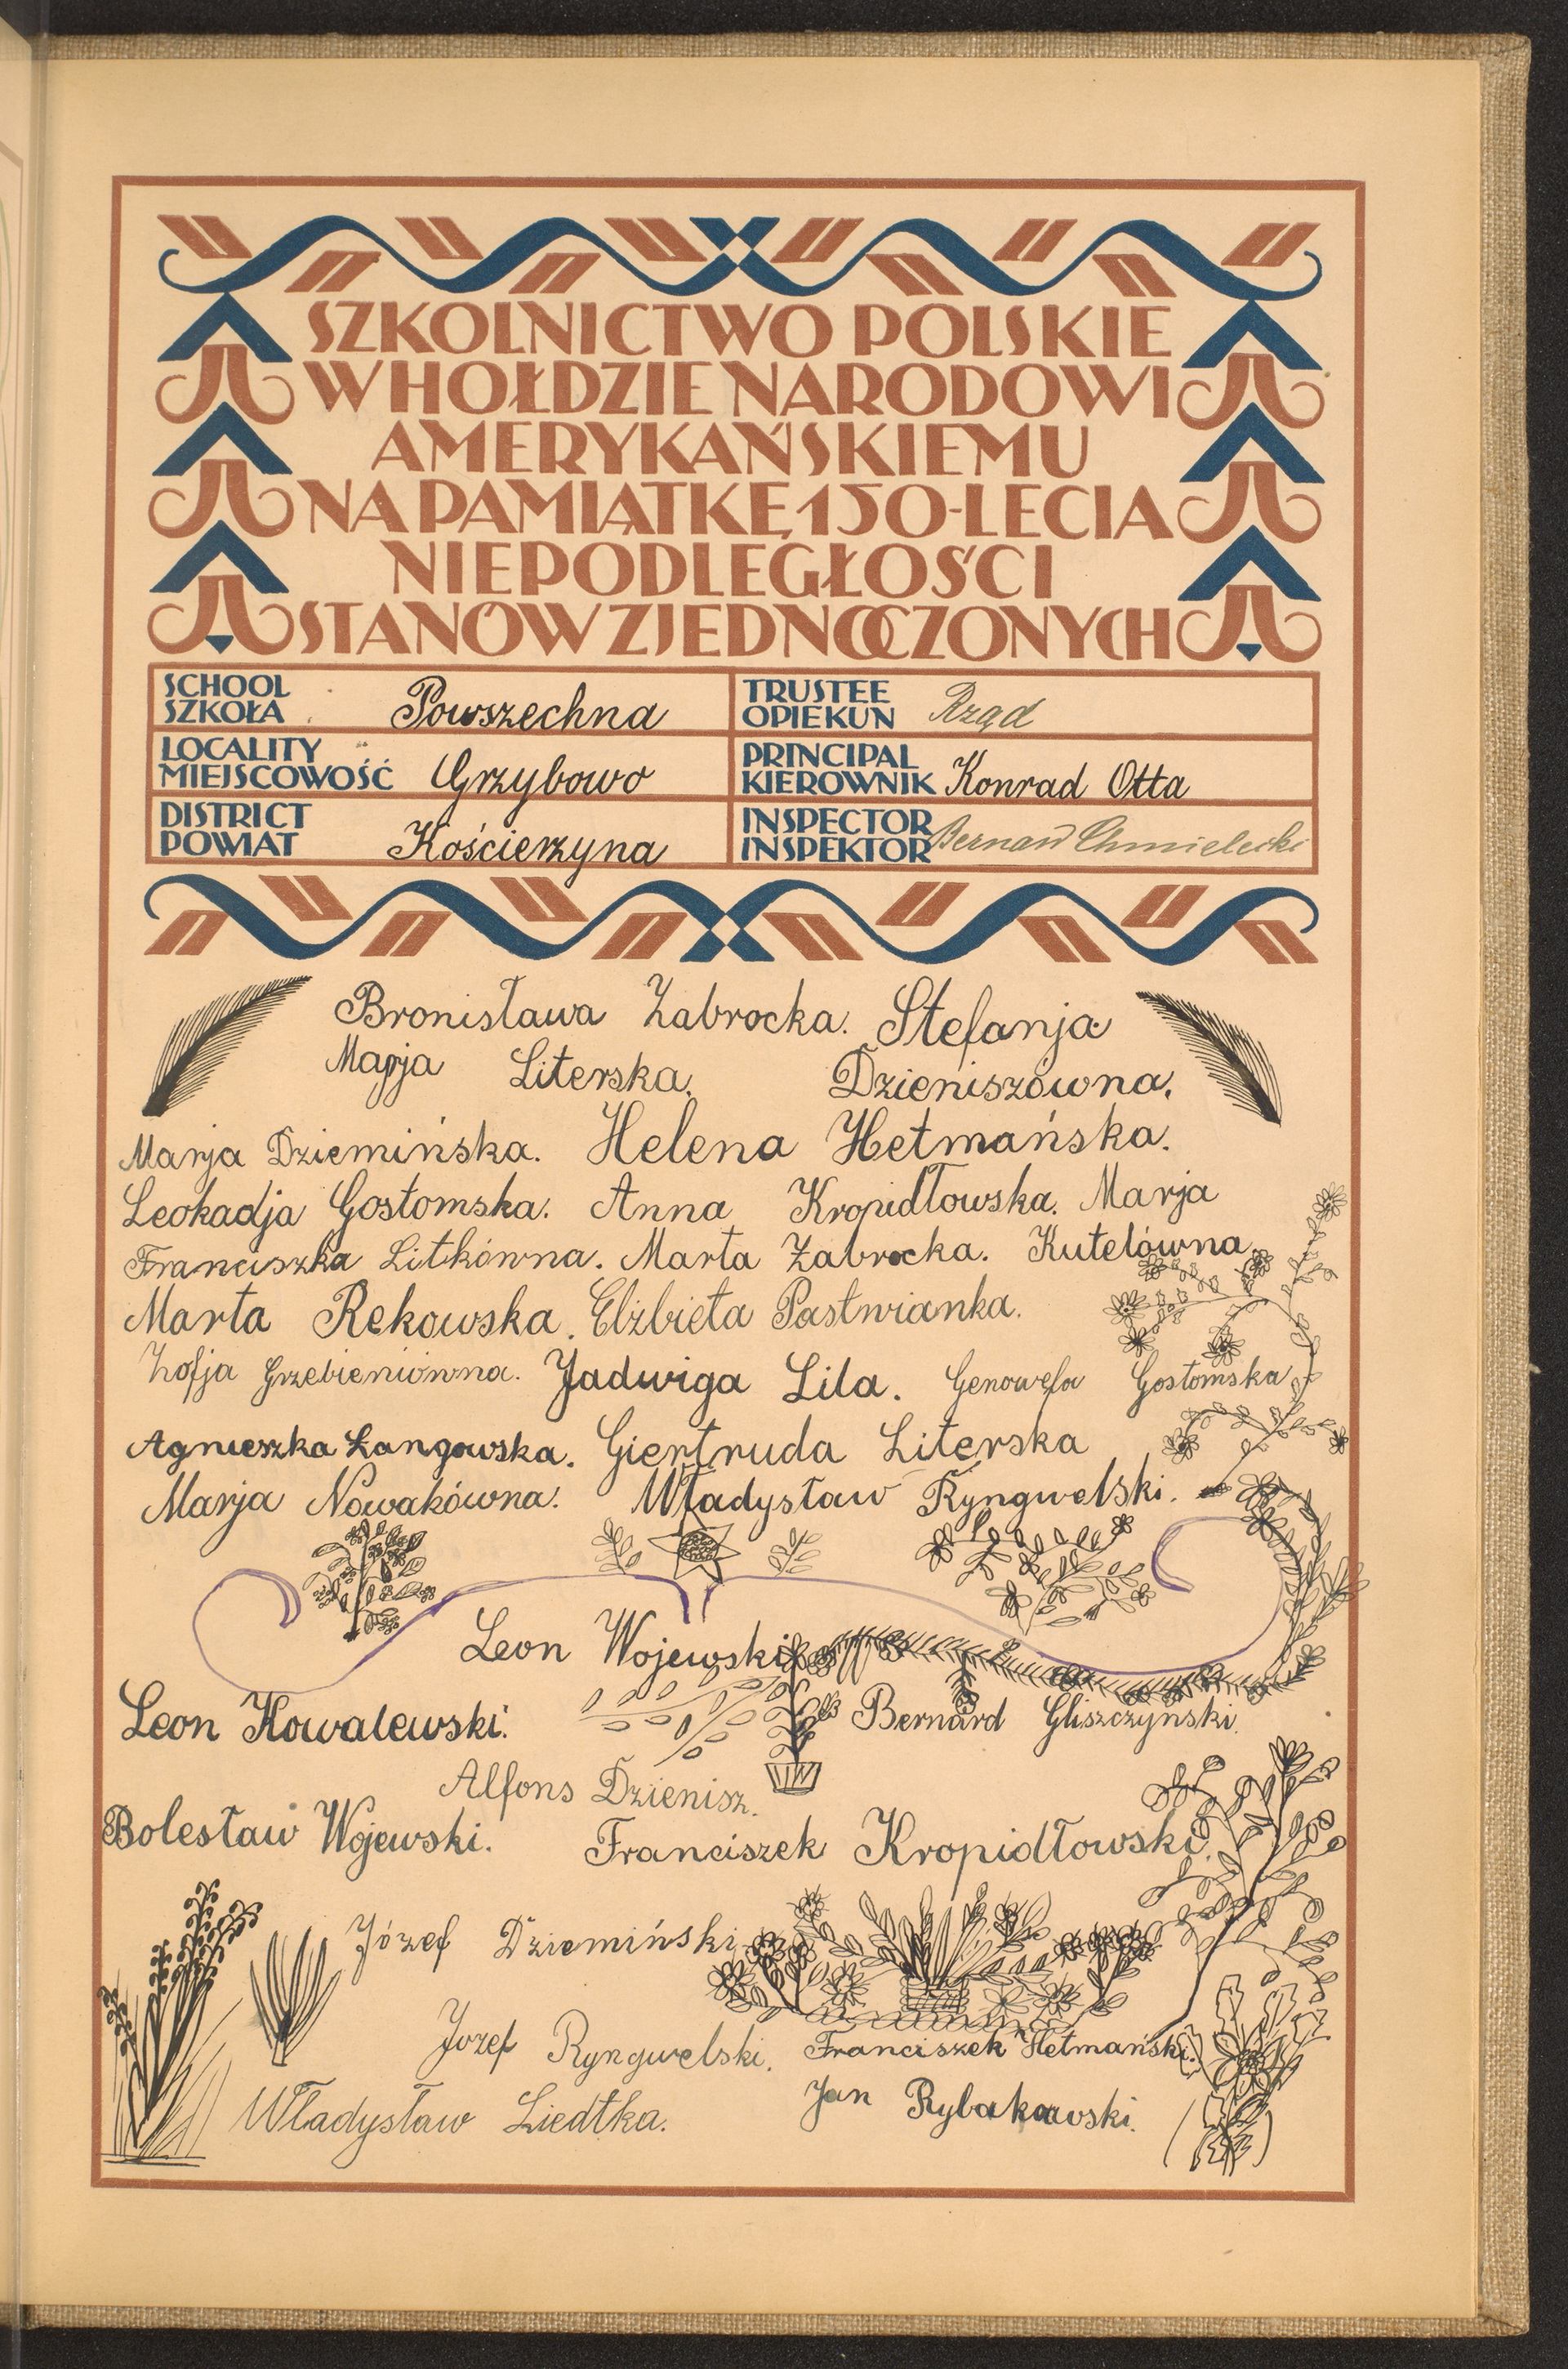 SZKOLNICTWO POLSKIE
W HOŁDZIE NARODOWI
AMERYKAŃSKIEMU
NA PAMIĄTKĘ 150-LECIA
NIEPODLEGŁOŚCI
STANÓW ZJEDNOCZONYCH
SCHOOL
SZKOŁA Powszechna
TRUSTEE
OPIEKUN Rząd
LOCALITY
MIEJSCOWOŚĆ Grzybowo
PRINCIPAL
KIEROWNIK Konrad Otta
DISTRICT
POWIAT Kościerzyna
INSPECTOR
INSPEKTOR Bernard Chmielecki
Bronisława Zabrocka. Stefanja
Marja Literska. Dzieniszówna.
Marja Dziemińska. Helena Hetmańska.
Leokadja Gostomska. Anna Kropidłowska. Marja
Franciszka Litkówna. Marta Zabrocka. Kutelówna
Marta Rekowska. Elżbieta Pastwianka.
Zofja Grzebieniówna. Jadwiga Lila. Genowefa Gostomska
Agnieszka Langowska. Giertruda Literska
Marja Nowakówna. Władysław Ryngwelski.
Leon Wojewski
Leon Kowalewski. Bernard Gliszczyński.
Alfons Dzienisz.
Bolesław Wojewski. Franciszek Kropidłowski.
Józef Dziemiński
Jozef Ryngwelski. Franciszek Hetmański.
Władysław Liedtka. Jan Rybakowski.